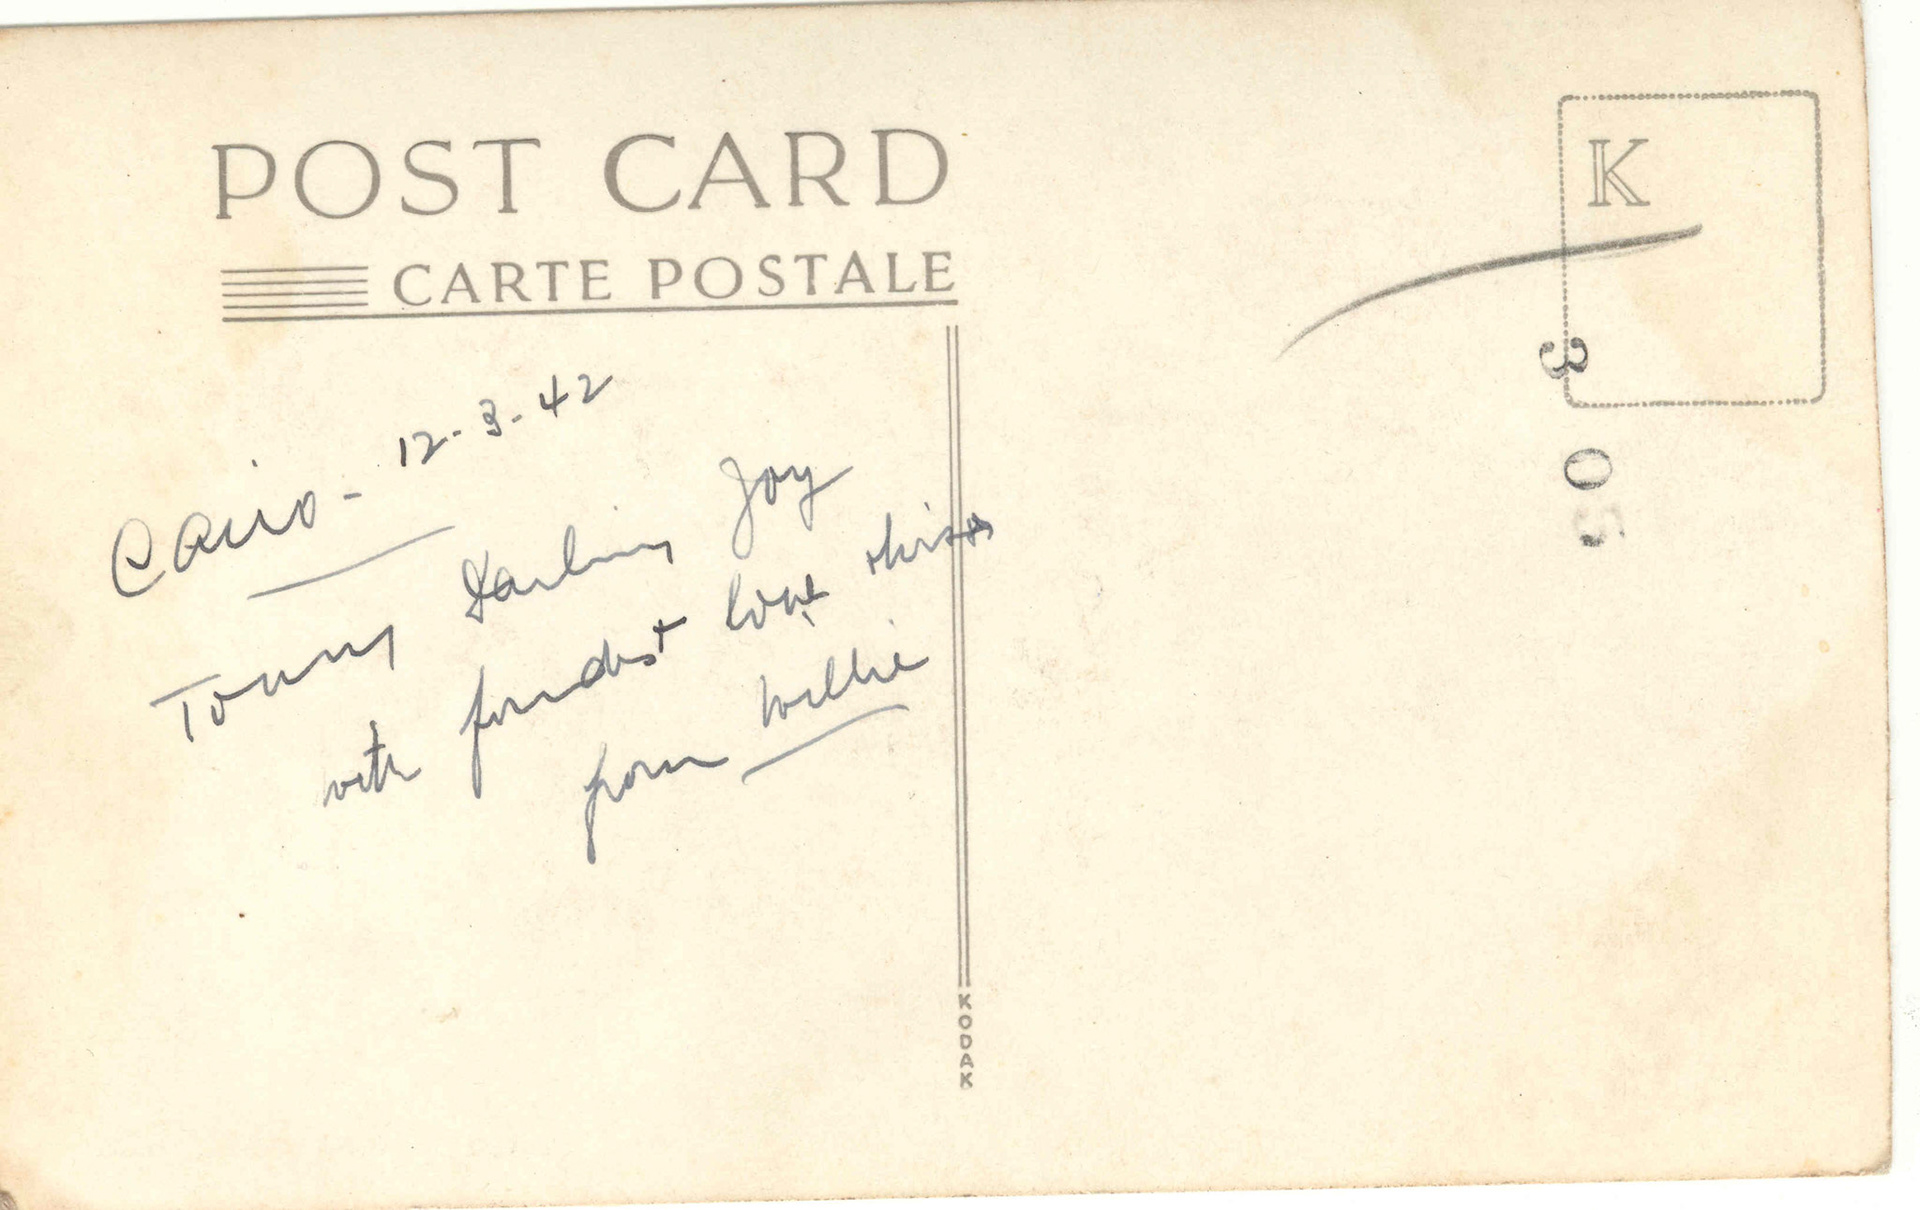 POST CARD
CARTE POSTALE
K
3 05
Cairo - 12-3-42
To my Darling Joy
with fondest love
from Willie
KODAK